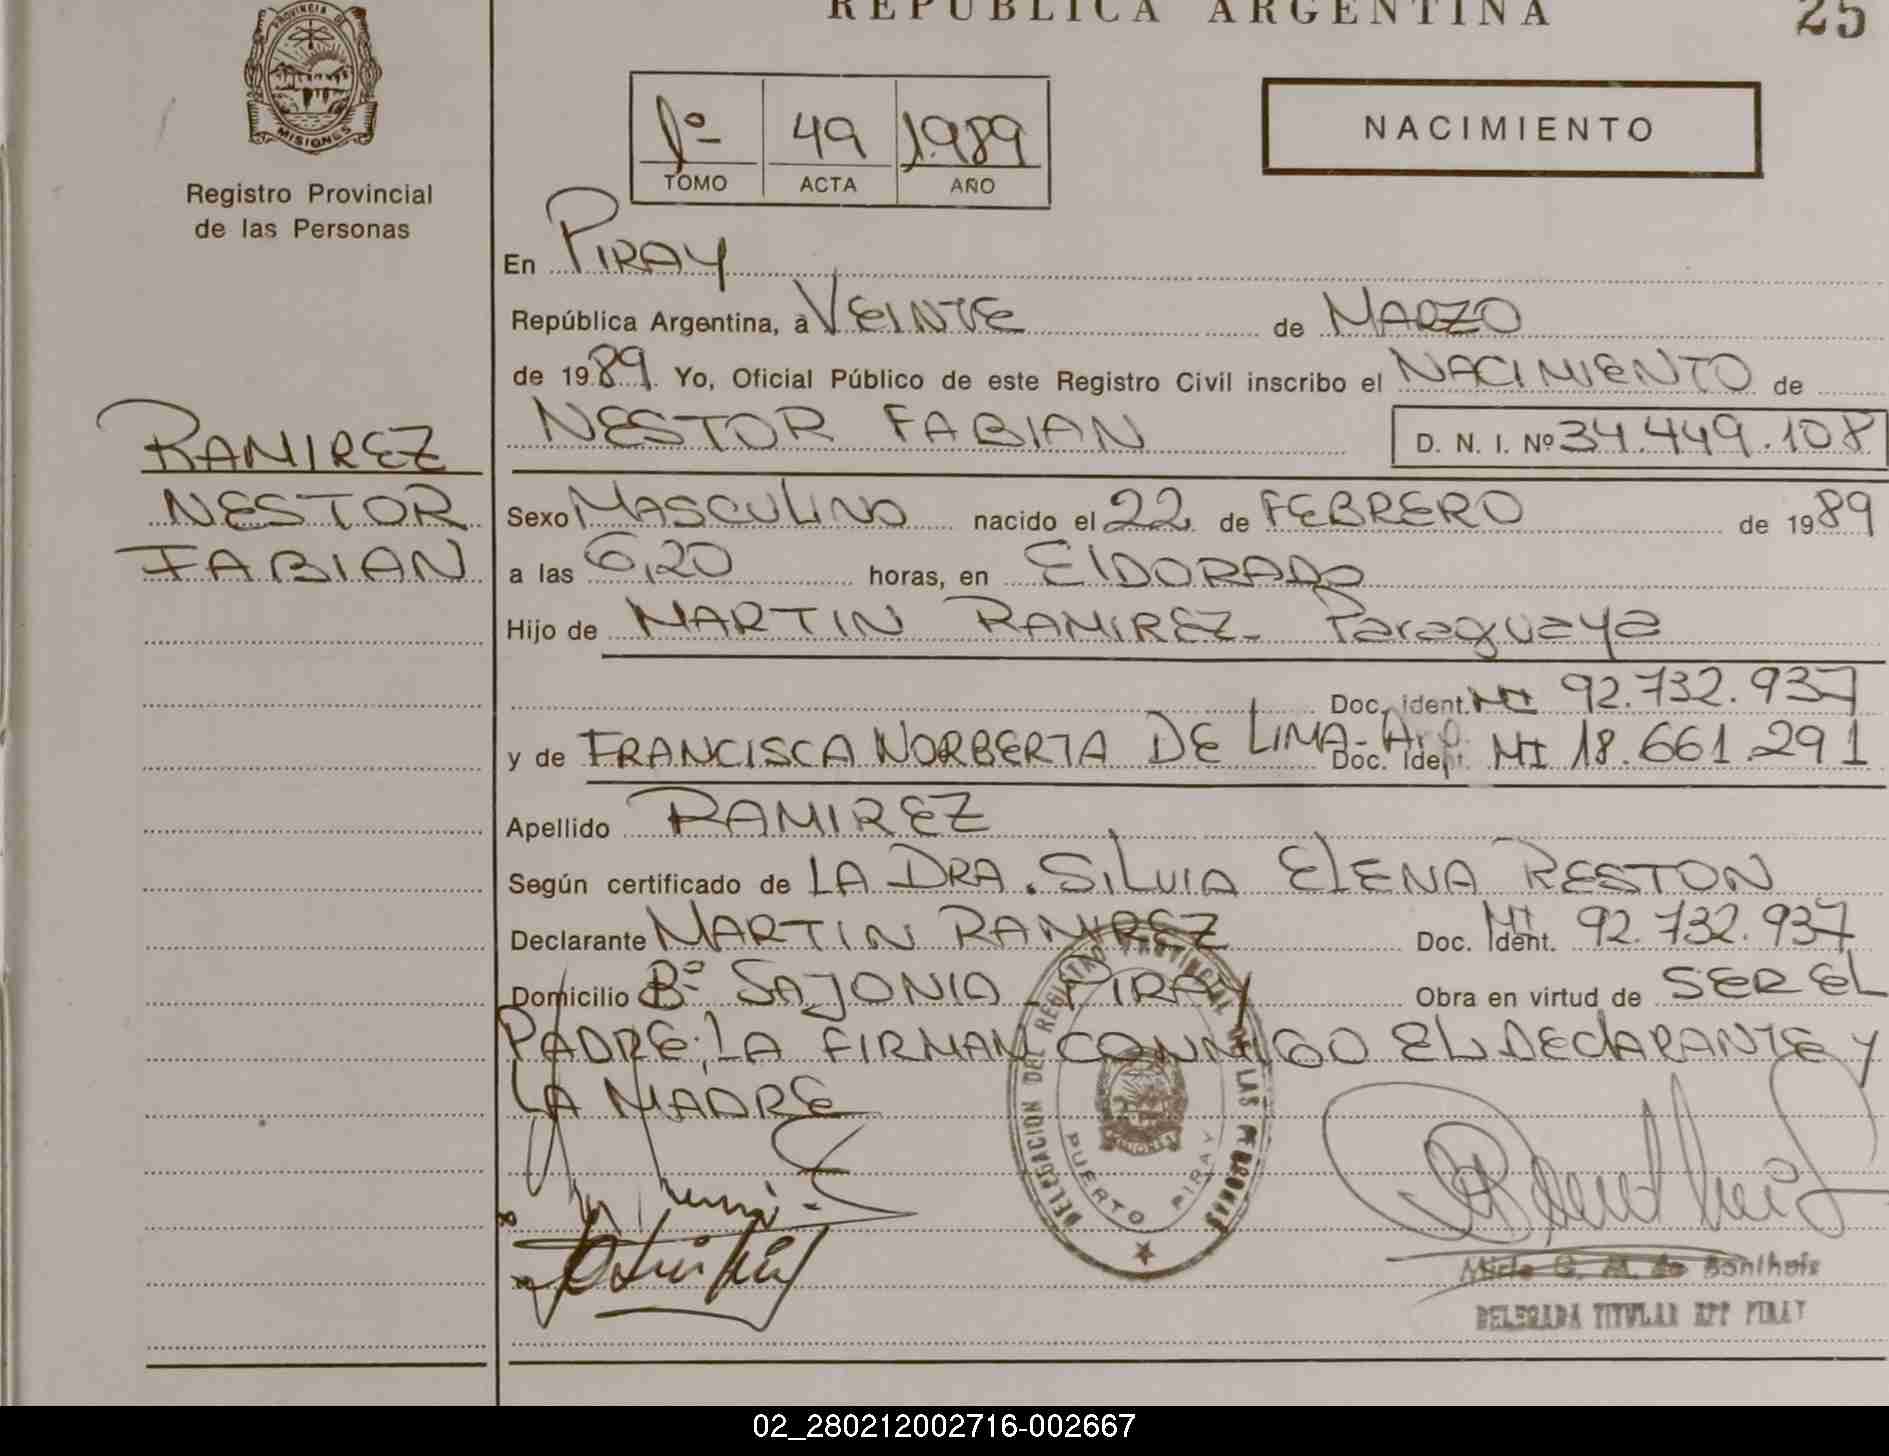 REPUBLICA ARGENTINA
25
PROVINCIA DE
MISIONES
Registro Provincial
de las Personas
1º- 49 1989
TOMO ACTA AÑO
NACIMIENTO
En PIRAY
República Argentina, a VEINTE de MARZO
de 1989. Yo, Oficial Público de este Registro Civil inscribo el NACIMIENTO de
NESTOR FABIAN D. N. I. Nº 34.449.108
RAMIREZ
NESTOR
FABIAN
Sexo MASCULINO nacido el 22 de FEBRERO de 1989
a las 6,20 horas, en ElDORADO
Hijo de MARTIN RAMIREZ- Paraguaya
Doc. ident. MI 92.732.937
y de FRANCISCA NORBERTA DE LIMA- Arg. Doc. Ident. MI 18.661.291
Apellido RAMIREZ
Según certificado de LA DRA. SILVIA ELENA RESTON
Declarante MARTIN RAMIREZ Doc. Ident. MI 92.732.937
Domicilio Bº SAJONIA - PIRAY Obra en virtud de SER EL
PADRE; LA FIRMAN CONMIGO EL DECLARANTE Y
LA MADRE
DELEGACION DEL REGISTRO PROVINCIAL DE LAS PERSONAS
PUERTO PIRAY
DELEGADA TITULAR RPP PIRAY
02_280212002716-002667